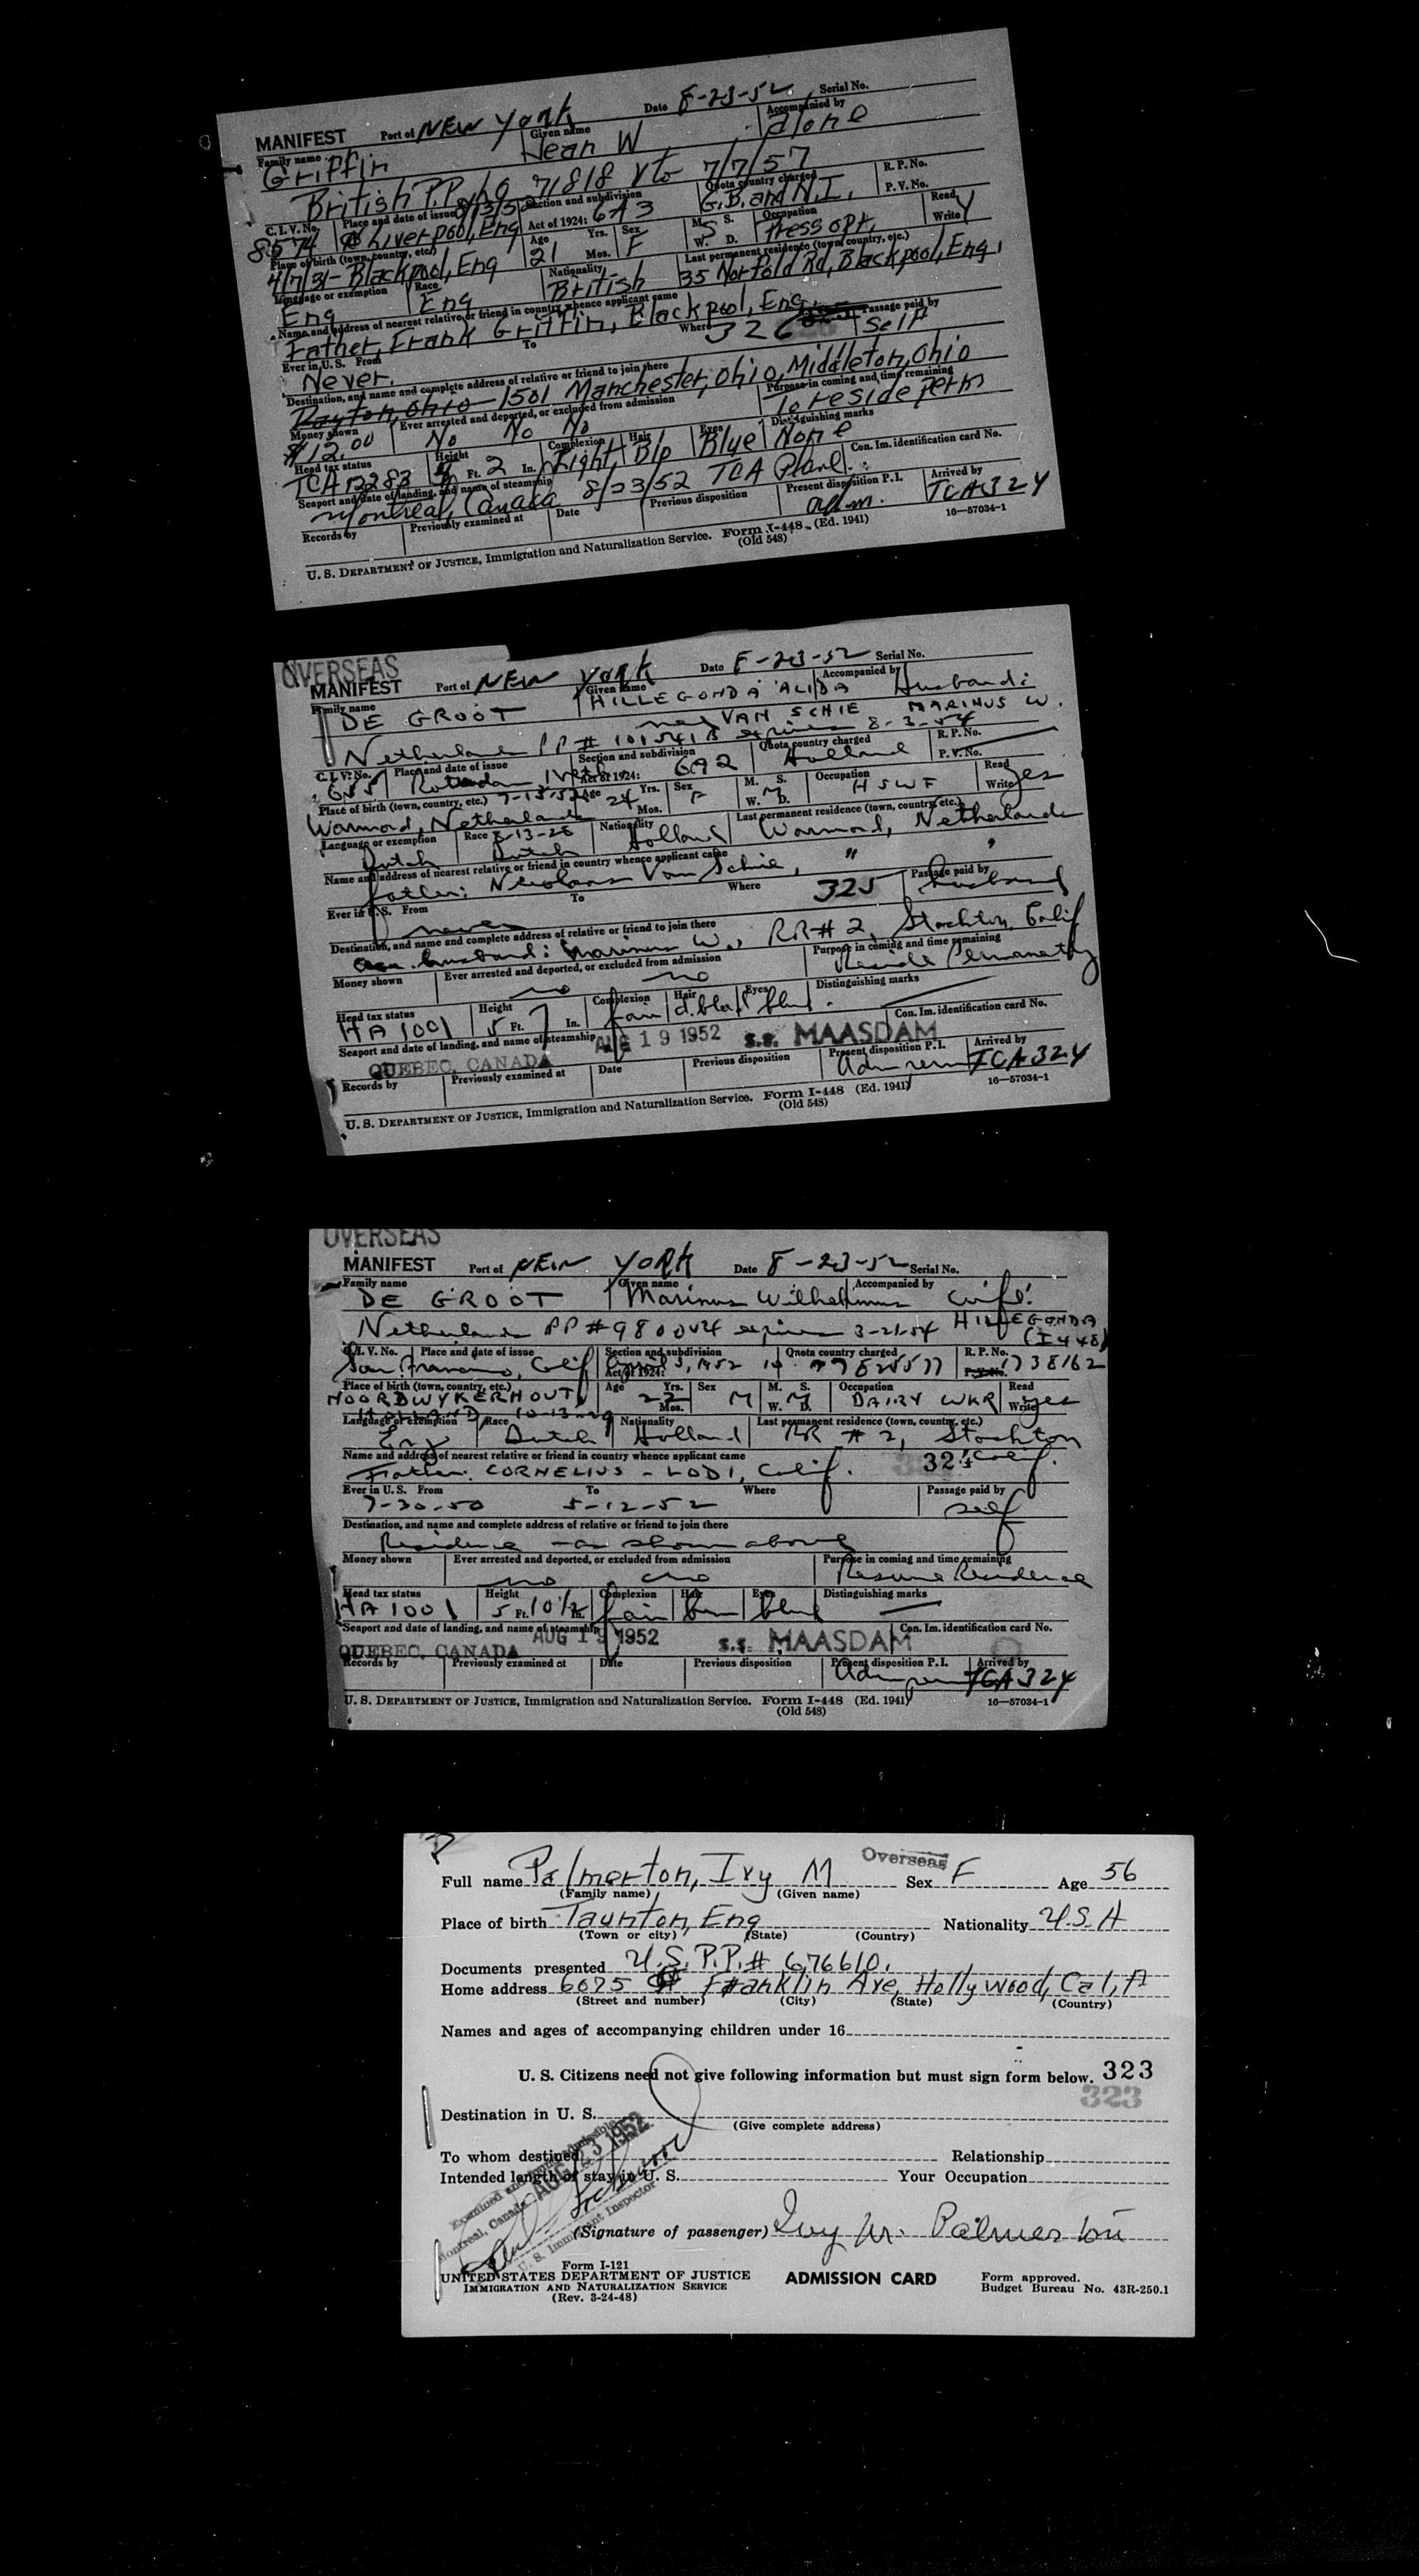 MANIFEST Port of NEW YORK Date 8-23-52 Serial No.
Family name Given name Accompanied by
Griffin Jean W alone
British P.P. No 71818 Vto 7/7/57
C.I.V. No. Place and date of issue Section and subdivision Quota country charged R. P. No.
8574 Liverpool, Eng Act of 1924: 6A3 G.B. and N.I. P. V. No.
Place of birth (town, country, etc.) Age Yrs. Sex M. S. Occupation Read
4/7/31 - Blackpool, Eng 21 Mos. F W. D. S Press opr. Write Y
Language or exemption Race Nationality Last permanent residence (town, country, etc.)
Eng Eng British 35 Norfold Rd, Blackpool, Eng.
Name and address of nearest relative or friend in country whence applicant came
Father, Frank Griffin, Blackpool, Eng. 326
Ever in U. S. From To Where Passage paid by
Never. Self
Destination, and name and complete address of relative or friend to join there
Dayton, Ohio - 1501 Manchester, Ohio, Middleton, Ohio
Money shown Ever arrested and deported, or excluded from admission Purpose in coming and time remaining
$12.00 No No No To reside perm
Head tax status Height Complexion Hair Eyes Distinguishing marks
TCA 12283 Ft. 2 In. Light Blo Blue None
Seaport and date of landing, and name of steamship Con. Im. identification card No.
Montreal, Canada 8/23/52 TCA Plane
Records by Previously examined at Date Previous disposition Present disposition P. I. Arrived by
adm. TCA 324
U. S. DEPARTMENT OF JUSTICE, Immigration and Naturalization Service. Form I-448 (Ed. 1941) 16—57034-1
(Old 548)
OVERSEAS
MANIFEST Port of NEW YORK Date 8-23-52 Serial No.
Family name Given name Accompanied by
DE GROOT HILLEGONDA ALIDA Husband:
nee VAN SCHIE MARINUS W.
Netherlands PP # 101541B expires 8-3-54
C. I. V. No. Place and date of issue Section and subdivision Quota country charged R. P. No.
655 Rotterdam, Neth Act of 1924: 692 Holland P. V. No.
Place of birth (town, country, etc.) 7-15-52 Age Yrs. Sex M. S. Occupation Read
Warmond, Netherlands 24 Mos. F W. D. M HSWF Write yes
Language or exemption Race Nationality Last permanent residence (town, country, etc.)
Dutch Dutch Holland Warmond, Netherlands
Name and address of nearest relative or friend in country whence applicant came
father: Nicolaas Van Schie, " "
Ever in U. S. From To Where 325 Passage paid by
never husband
Destination, and name and complete address of relative or friend to join there
husband: Marinus W., RR # 2, Stockton, Calif
Money shown Ever arrested and deported, or excluded from admission Purpose in coming and time remaining
no no Reside Permanently
Head tax status Height Complexion Hair Eyes Distinguishing marks
HA 1001 5 Ft. 7 In. fair
Seaport and date of landing, and name of steamship Con. Im. identification card No.
QUEBEC, CANADA AUG 19 1952 S.S. MAASDAM
Records by Previously examined at Date Previous disposition Present disposition P. I. Arrived by
Adm perm TCA 324
U. S. DEPARTMENT OF JUSTICE, Immigration and Naturalization Service. Form I-448 (Ed. 1941) 16—57034-1
(Old 548)
OVERSEAS
MANIFEST Port of NEW YORK Date 8-23-52 Serial No.
Family name Given name Accompanied by
DE GROOT Marinus Wilhelmus wife:
Netherlands PP # 980004 expires 3-21-54 HILLEGONDA
(I448)
C. I. V. No. Place and date of issue Section and subdivision Quota country charged R. P. No.
San Francisco, Calif Act of 1924: 1738162
Place of birth (town, country, etc.) Age Yrs. Sex M. S. Occupation Read
NOORDWYKERHOUT 22 Mos. M W. D. M DAIRY WKR Write yes
HOLLAND 10-13-29
Language or exemption Race Nationality Last permanent residence (town, country, etc.)
Eng Dutch Holland RR # 2, Stockton
Name and address of nearest relative or friend in country whence applicant came Calif.
Father: CORNELIUS - LODI, Calif. 324
Ever in U. S. From To Where Passage paid by
7-30-50 5-12-52 self
Destination, and name and complete address of relative or friend to join there
Residence - as shown above
Money shown Ever arrested and deported, or excluded from admission Purpose in coming and time remaining
no no Resume Residence
Head tax status Height Complexion Hair Eyes Distinguishing marks
HA 1001 5 Ft. 10 1/2 In. fair
Seaport and date of landing, and name of steamship Con. Im. identification card No.
QUEBEC, CANADA AUG 19 1952 S.S. MAASDAM
Records by Previously examined at Date Previous disposition Present disposition P. I. Arrived by
Adm perm TCA 324
U. S. DEPARTMENT OF JUSTICE, Immigration and Naturalization Service. Form I-448 (Ed. 1941) 16—57034-1
(Old 548)
P
Overseas
Full name Palmerton, Ivy M Sex F Age 56
(Family name) (Given name)
Place of birth Taunton, Eng Nationality U.S.A
(Town or city) (State) (Country)
Documents presented U.S. P.P. # 676610.
Home address 6025 Franklin Ave, Hollywood, Cal,
(Street and number) (City) (State) (Country)
Names and ages of accompanying children under 16
U. S. Citizens need not give following information but must sign form below. 323
323
Destination in U. S.
(Give complete address)
To whom destined Relationship
Intended length of stay in U. S. Your Occupation
Montreal, Canada AUG 23 1952
U. S. Immigrant Inspector
(Signature of passenger) Ivy M. Palmerton
Form I-121
UNITED STATES DEPARTMENT OF JUSTICE ADMISSION CARD Form approved.
IMMIGRATION AND NATURALIZATION SERVICE Budget Bureau No. 43R-250.1
(Rev. 3-24-48)